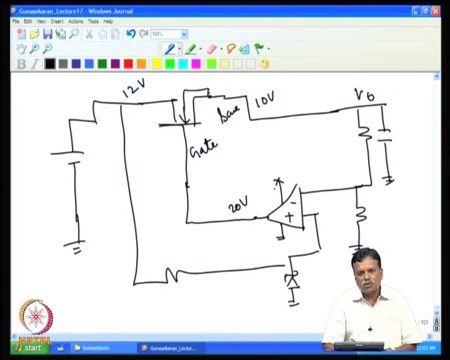 Gunasekaran_Lecture17 - Windows Journal
File Edit View Insert Actions Tools Help
100%
B I
12V
10V
V0
Base
Gate
20V
-
+
NPTEL
start
Gunasekaran
Gunasekaran_Lectur...